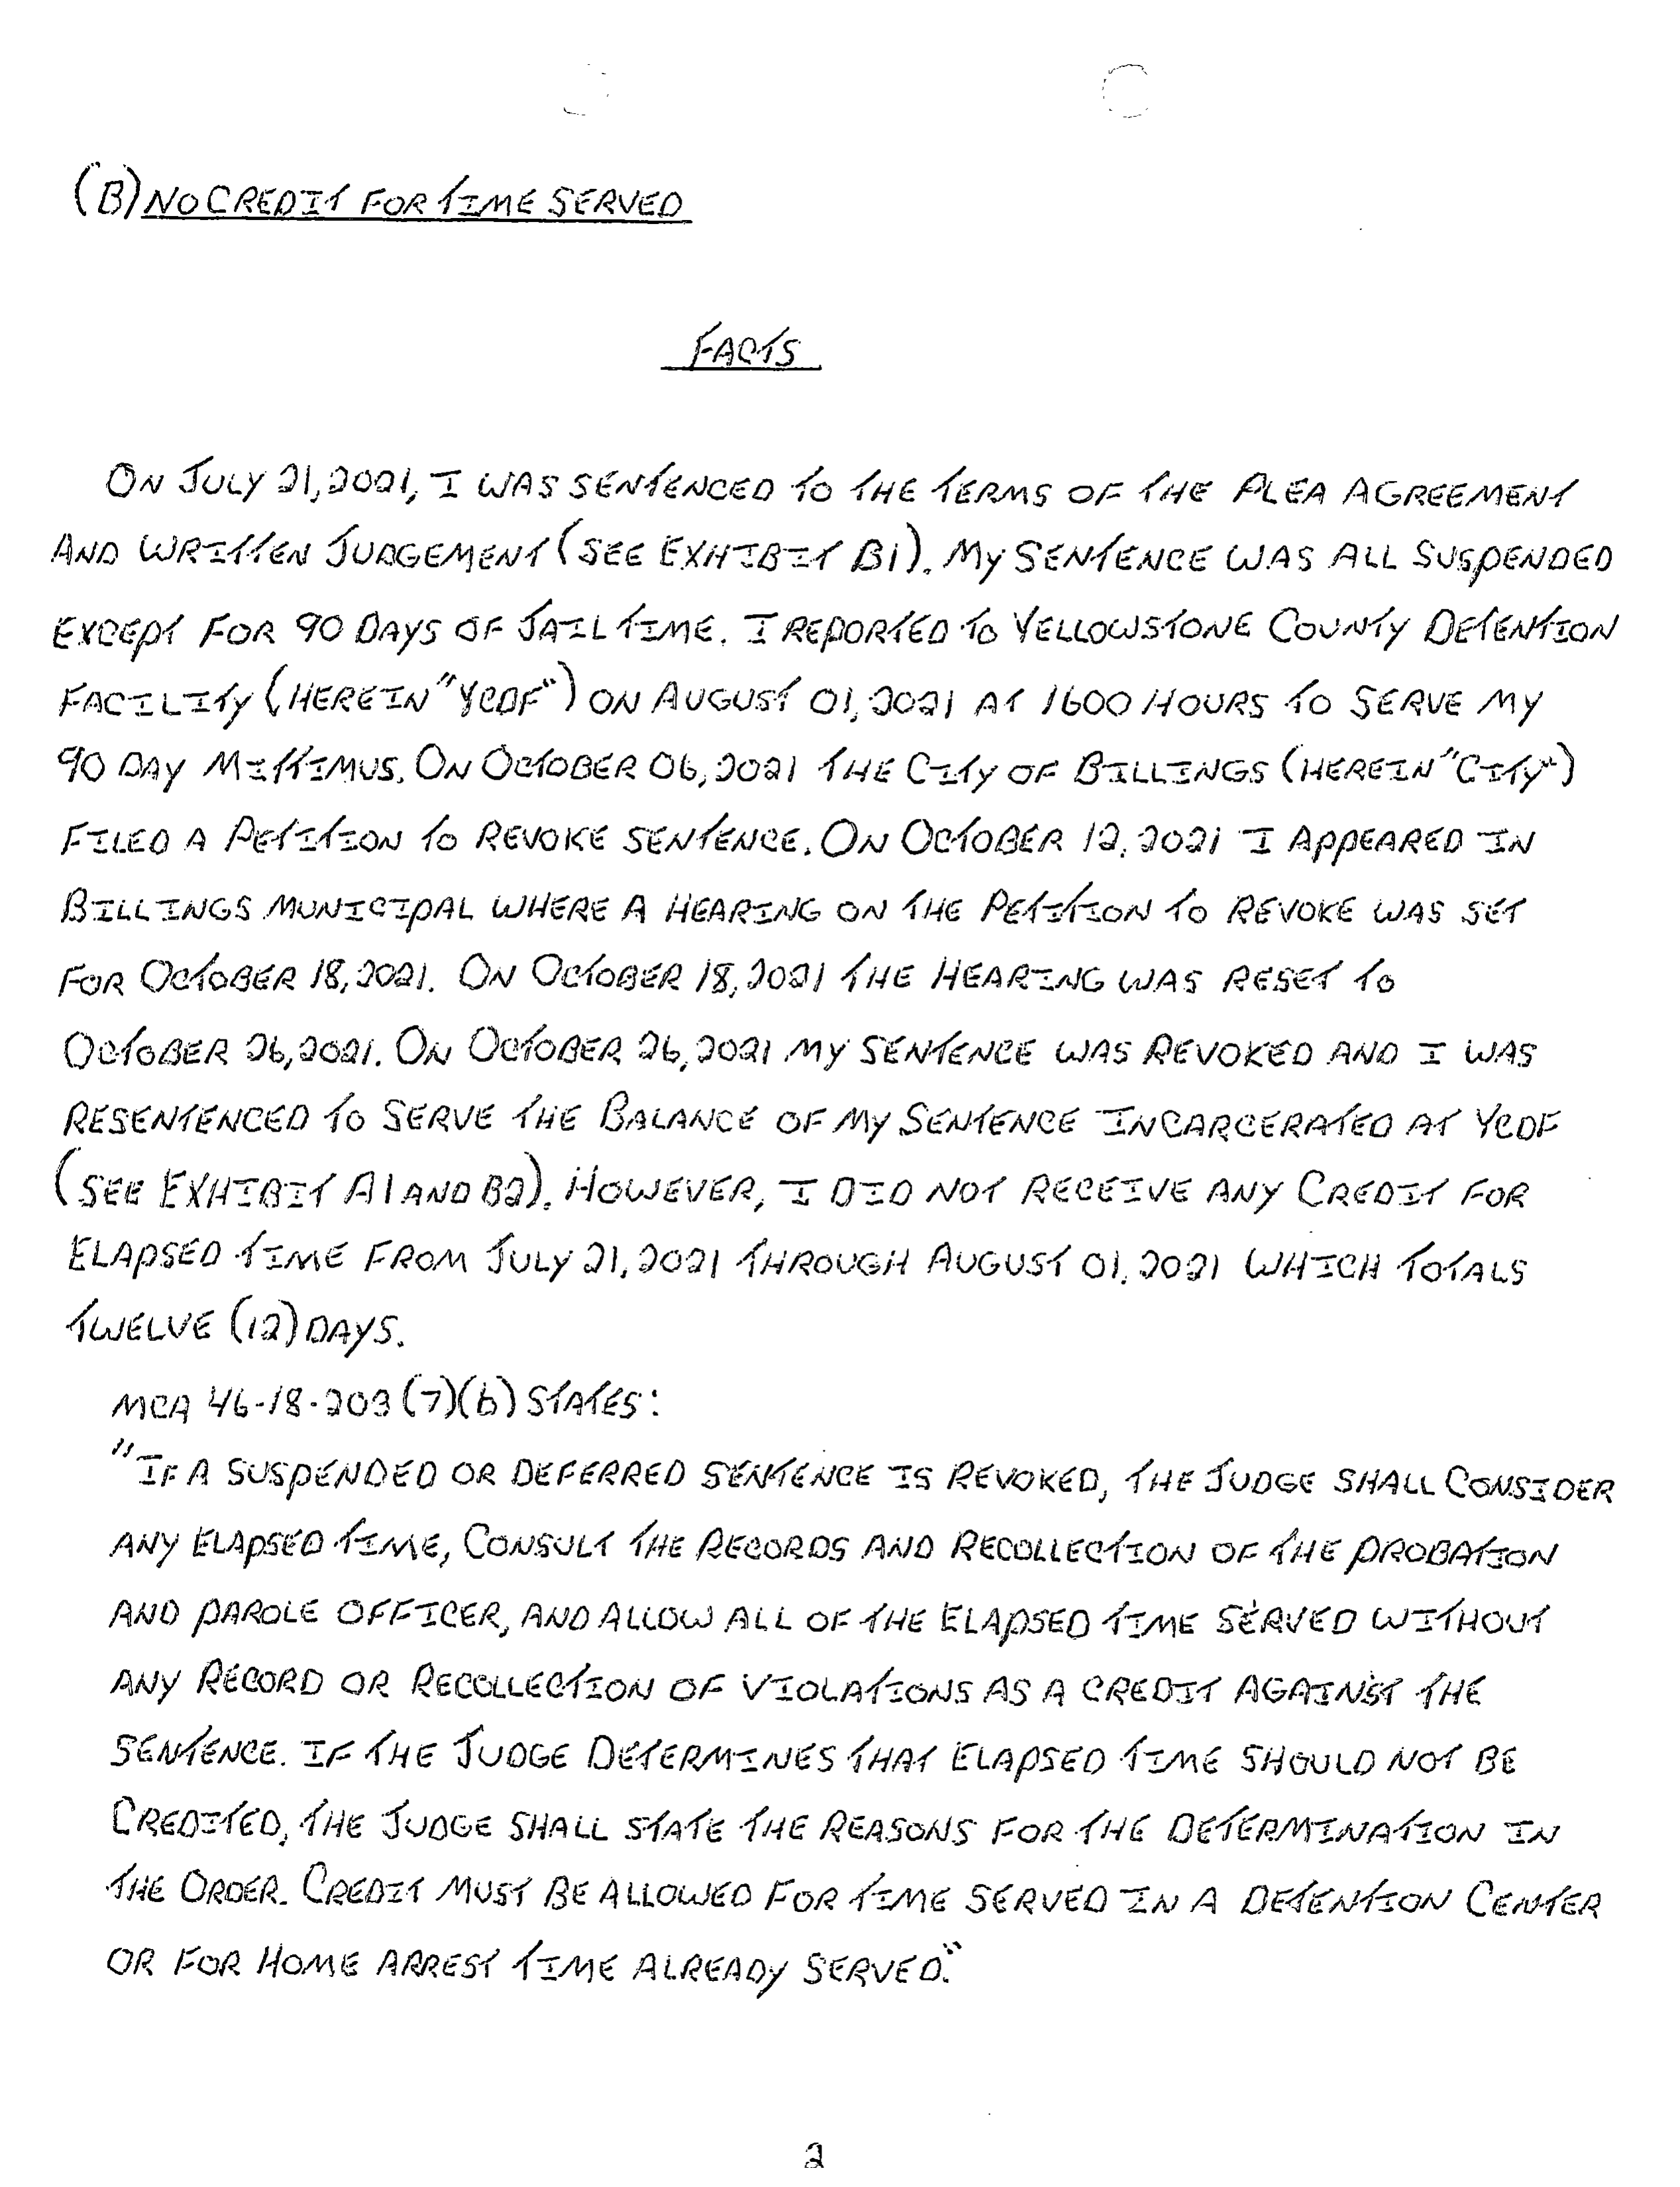 (B) NO CREDIT FOR TIME SERVED
FACTS
ON JULY 21, 2021, I WAS SENTENCED TO THE TERMS OF THE PLEA AGREEMENT
AND WRITTEN JUDGEMENT (SEE EXHIBIT B1). MY SENTENCE WAS ALL SUSPENDED
EXCEPT FOR 90 DAYS OF JAIL TIME. I REPORTED TO YELLOWSTONE COUNTY DETENTION
FACILITY (HEREIN "YCDF") ON AUGUST 01, 2021 AT 1600 HOURS TO SERVE MY
90 DAY MITTIMUS. ON OCTOBER 06, 2021 THE CITY OF BILLINGS (HEREIN "CITY")
FILED A PETITION TO REVOKE SENTENCE. ON OCTOBER 12, 2021 I APPEARED IN
BILLINGS MUNICIPAL WHERE A HEARING ON THE PETITION TO REVOKE WAS SET
FOR OCTOBER 18, 2021. ON OCTOBER 18, 2021 THE HEARING WAS RESET TO
OCTOBER 26, 2021. ON OCTOBER 26, 2021 MY SENTENCE WAS REVOKED AND I WAS
RESENTENCED TO SERVE THE BALANCE OF MY SENTENCE INCARCERATED AT YCDF
(SEE EXHIBIT A1 AND B2). HOWEVER, I DID NOT RECEIVE ANY CREDIT FOR
ELAPSED TIME FROM JULY 21, 2021 THROUGH AUGUST 01, 2021 WHICH TOTALS
TWELVE (12) DAYS.
MCA 46-18-203 (7)(b) STATES:
"IF A SUSPENDED OR DEFERRED SENTENCE IS REVOKED, THE JUDGE SHALL CONSIDER
ANY ELAPSED TIME, CONSULT THE RECORDS AND RECOLLECTION OF THE PROBATION
AND PAROLE OFFICER, AND ALLOW ALL OF THE ELAPSED TIME SERVED WITHOUT
ANY RECORD OR RECOLLECTION OF VIOLATIONS AS A CREDIT AGAINST THE
SENTENCE. IF THE JUDGE DETERMINES THAT ELAPSED TIME SHOULD NOT BE
CREDITED, THE JUDGE SHALL STATE THE REASONS FOR THE DETERMINATION IN
THE ORDER. CREDIT MUST BE ALLOWED FOR TIME SERVED IN A DETENTION CENTER
OR FOR HOME ARREST TIME ALREADY SERVED."
2